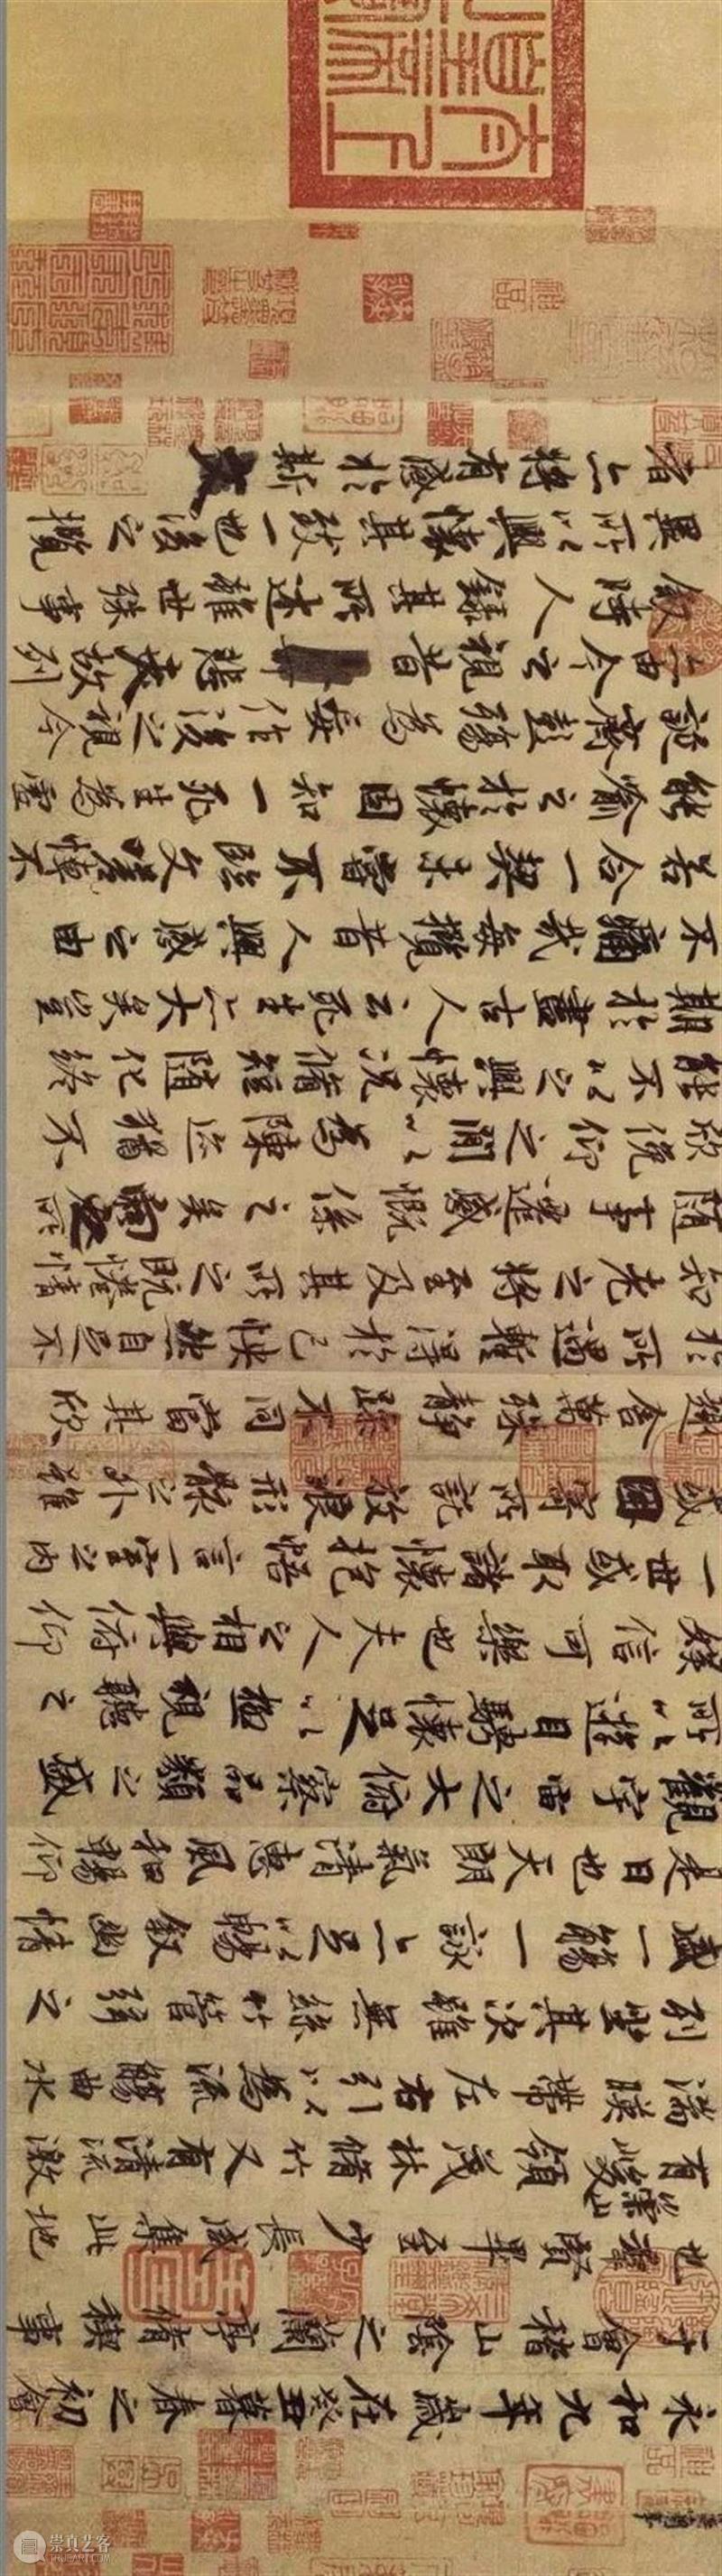 永和九年歲在癸丑暮春之初會
于會稽山陰之蘭亭脩稧事
也群賢畢至少長咸集此地
有崇山峻領茂林脩竹又有清流激
湍暎帶左右引以為流觴曲水
列坐其次雖無絲竹管弦之
盛一觴一詠亦足以暢敘幽情
是日也天朗氣清惠風和暢仰
觀宇宙之大俯察品類之盛
所以遊目騁懷足以極視聽之
娛信可樂也夫人之相與俯仰
一世或取諸懷抱悟言一室之內
或因寄所託放浪形骸之外雖
趣舍萬殊靜躁不同當其欣
於所遇暫得於己快然自足不
知老之將至及其所之既惓情
隨事遷感慨係之矣向之所
欣俛仰之間以為陳迹猶不
能不以之興懷況脩短隨化終
期於盡古人云死生亦大矣豈
不痛哉每攬昔人興感之由
若合一契未嘗不臨文嗟悼不
能喻之於懷固知一死生為虛
誕齊彭殤為妄作後之視今
亦由今之視昔悲夫故列
敘時人錄其所述雖世殊事
異所以興懷其致一也後之攬
者亦將有感於斯文
崇真艺客